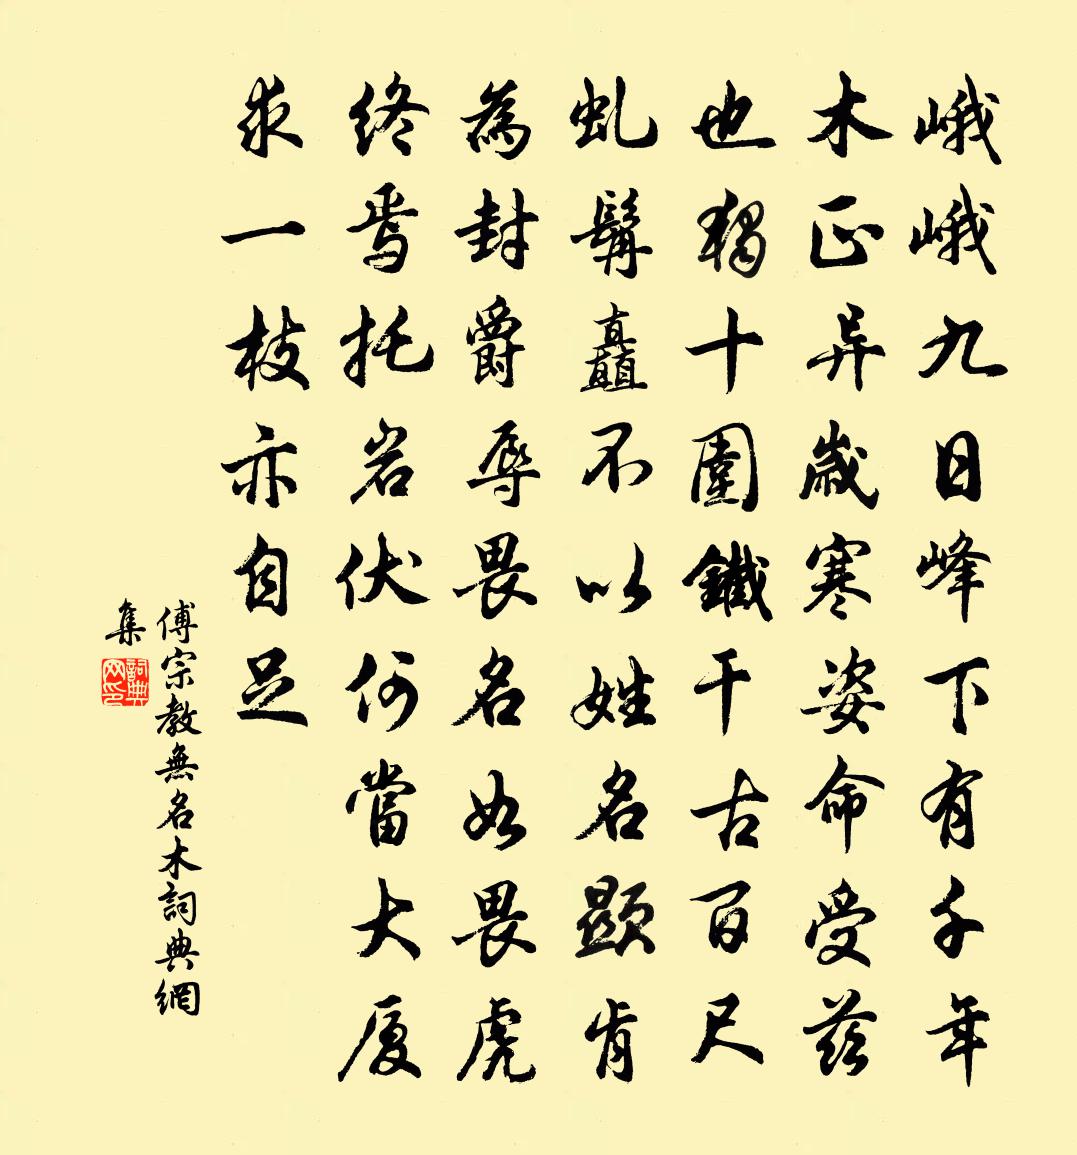 峨峨九日峰下有千年
木正异歲寒姿命受茲
也獨十圍鐵干古百尺
虬髯矗不以姓名顯肯
為封爵辱畏名如畏虎
終焉托岩伏何當大厦
求一枝亦自足
傅宗教無名木詞典網
集
詞典
网印